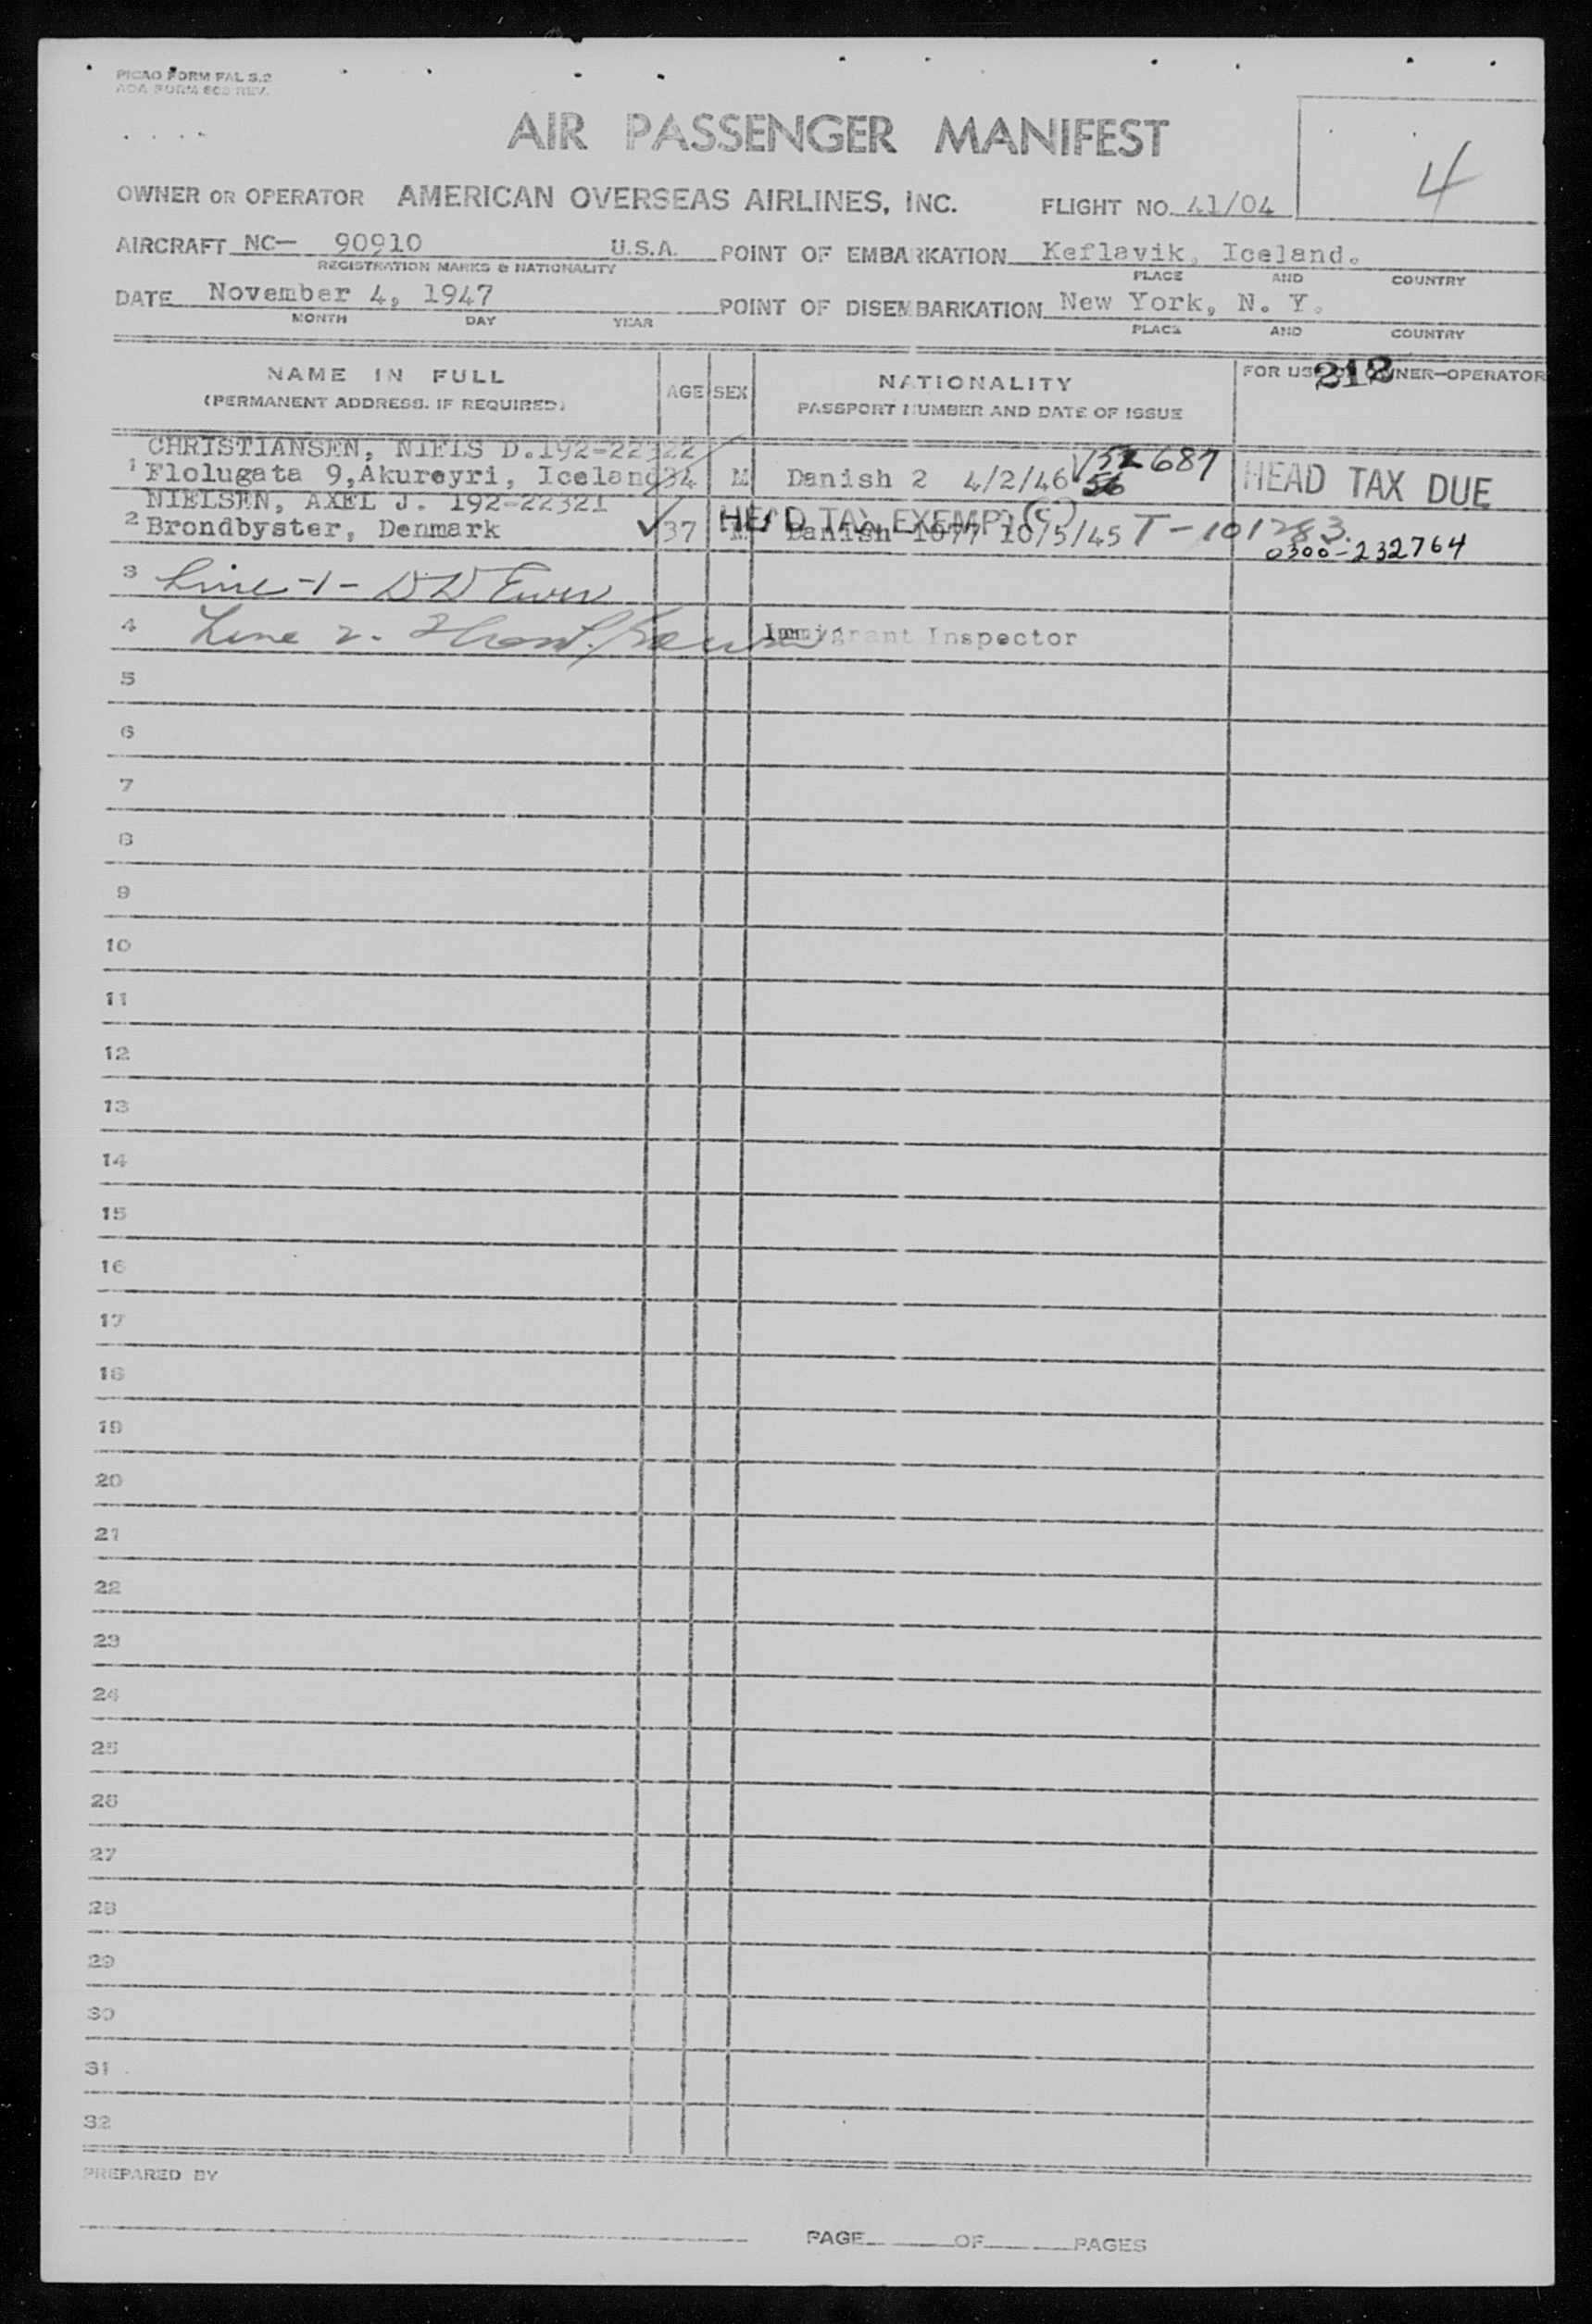 PICAO FORM FAL S.2
AOA FORM 605 REV.
4
AIR PASSENGER MANIFEST
OWNER OR OPERATOR AMERICAN OVERSEAS AIRLINES, INC. FLIGHT NO. 41/04
AIRCRAFT NC— 90910 U.S.A. POINT OF EMBARKATION Keflavik, Iceland.
REGISTRATION MARKS & NATIONALITY PLACE AND COUNTRY
DATE November 4, 1947 POINT OF DISEMBARKATION New York, N. Y.
MONTH DAY YEAR PLACE AND COUNTRY
NAME IN FULL
(PERMANENT ADDRESS, IF REQUIRED)
AGE SEX
NATIONALITY
PASSPORT NUMBER AND DATE OF ISSUE
FOR USE OF OWNER-OPERATOR
218
CHRISTIANSEN, NIELS D.192-22322
1 Flolugata 9,Akureyri, Iceland 34 M Danish 2 4/2/46 V52 687 HEAD TAX DUE
56
NIELSEN, AXEL J. 192-22321 HEAD TAX EXEMPT (C)
2 Brondbyster, Denmark 37 M Danish 1077 10/5/45 T-101283.
0300-232764
3 Line -1-
4 Line 2. Immigrant Inspector
5
6
7
8
9
10
11
12
13
14
15
16
17
18
19
20
21
22
23
24
25
26
27
28
29
30
31
32
PREPARED BY
PAGE OF PAGES